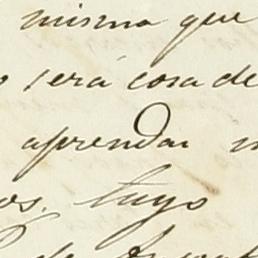 misma que
será cosa de
aprendan
os. tuyo